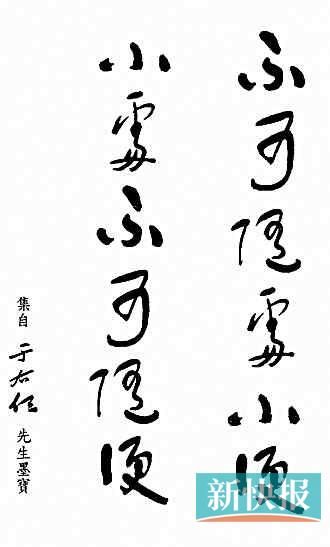 不可随處小便
小處不可随便
集自于右任先生墨寶
新快报